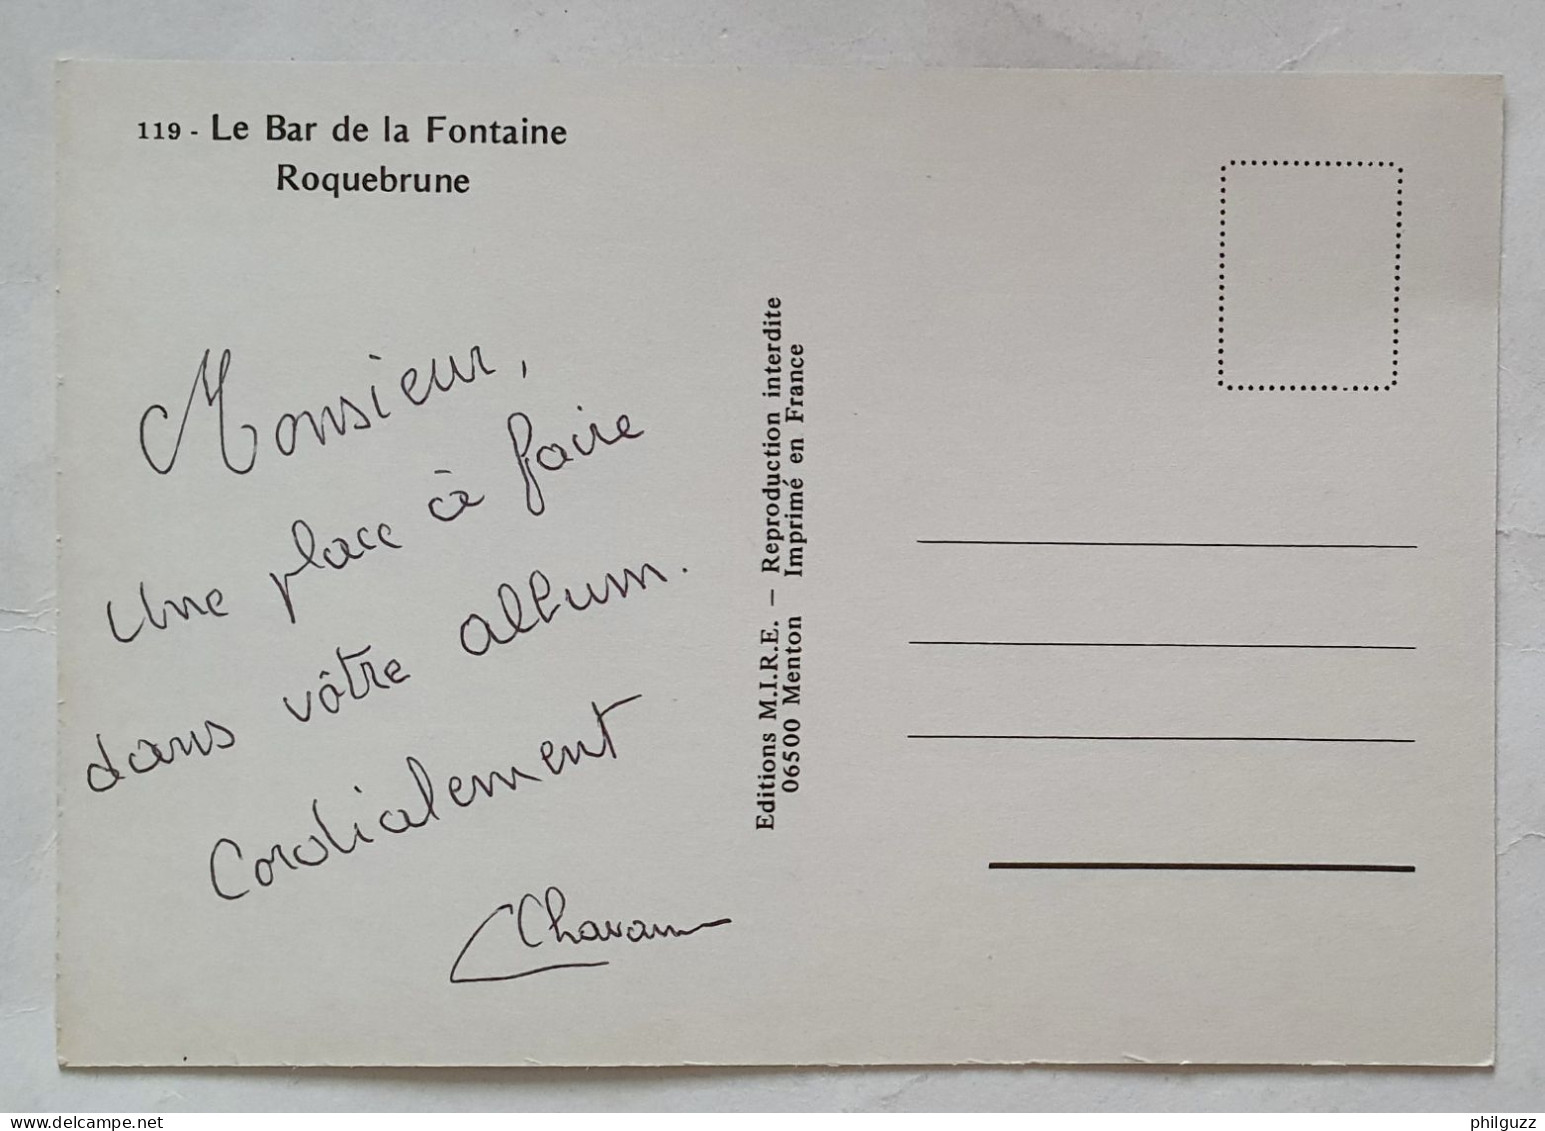 119 - Le Bar de la Fontaine
Roquebrune
Monsieur,
Une place à faire
dans vôtre album.
Cordialement
Editions M.I.R.E. — Reproduction interdite
06500 Menton Imprimé en France
philguzz